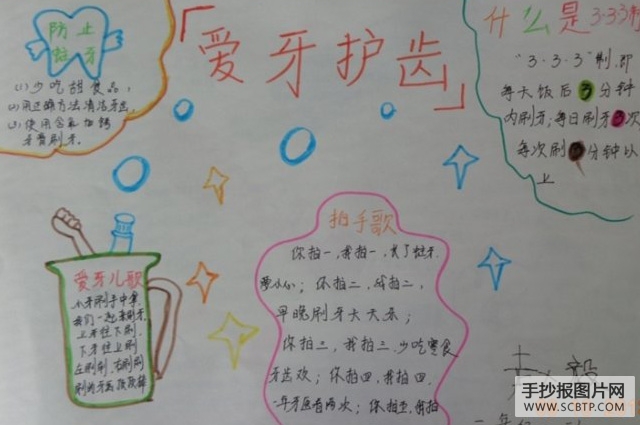 防止
蛀牙
(1)少吃甜食品,
(2)用正确方法清洁牙齿,
(3)使用含氟
牙膏刷牙.
「爱牙护齿」
什么是3·3·3制
"3·3·3"制,即
每天饭后3分钟
内刷牙;每日刷牙3次
每次刷3分钟以
上
爱牙儿歌
小牙刷手中拿,
我们一起来刷牙,
上牙往下刷,
下牙往上刷
左刷刷,右刷刷
刷的牙齿
拍手歌
你拍一,我拍一,长了蛀牙
你拍二,我拍二,
早晚刷牙天天乐;
你拍三,我拍三,少吃零食
牙齿欢;你拍四,我拍四,
一年 两次;你拍五,我拍
手抄报图片网
www.SCBTP.com